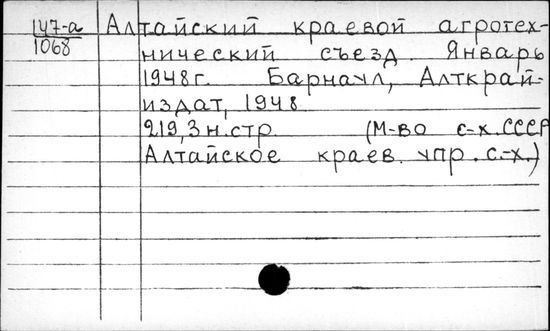 147-а
1068
Алтайский краевой агротех-
нический съезд. Январь
1948г. Барнаул, Алткрай-
издат, 1948.
219,3 н.стр (М-во с-х.СССР
Алтайское краев. упр. с.-х.)